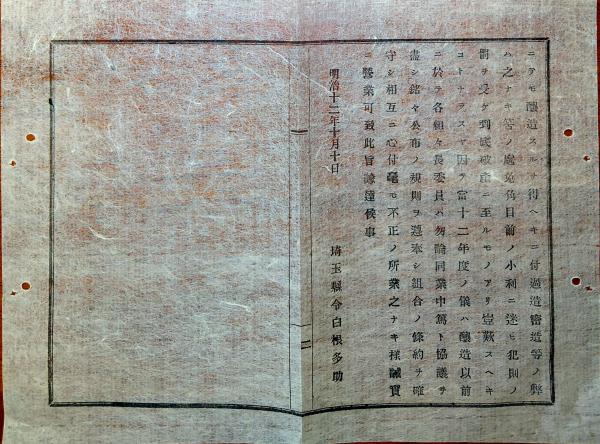 ニテモ釀造スルヲ得ヘキニ付過造密造等ノ弊
ハ之ナキ筈ノ處兎角目前ノ小利ニ迷ヒ犯則ノ
罰ヲ受ケ到底破產ニ至ルモノアリ豈歎スヘキ
コトナラスヤ因テ當十二年度ノ儀ハ釀造以前
ニ於テ各組々長委員ハ勿論同業中篤ト協議ヲ
盡シ銘々公布ノ規則ヲ遵奉シ組合ノ條約ヲ確
守シ相互ニ心付毫モ不正ノ所業之ナキ樣誠實
ニ營業可致此旨諭達候事
明治十二年十月十日
埼玉縣令白根多助